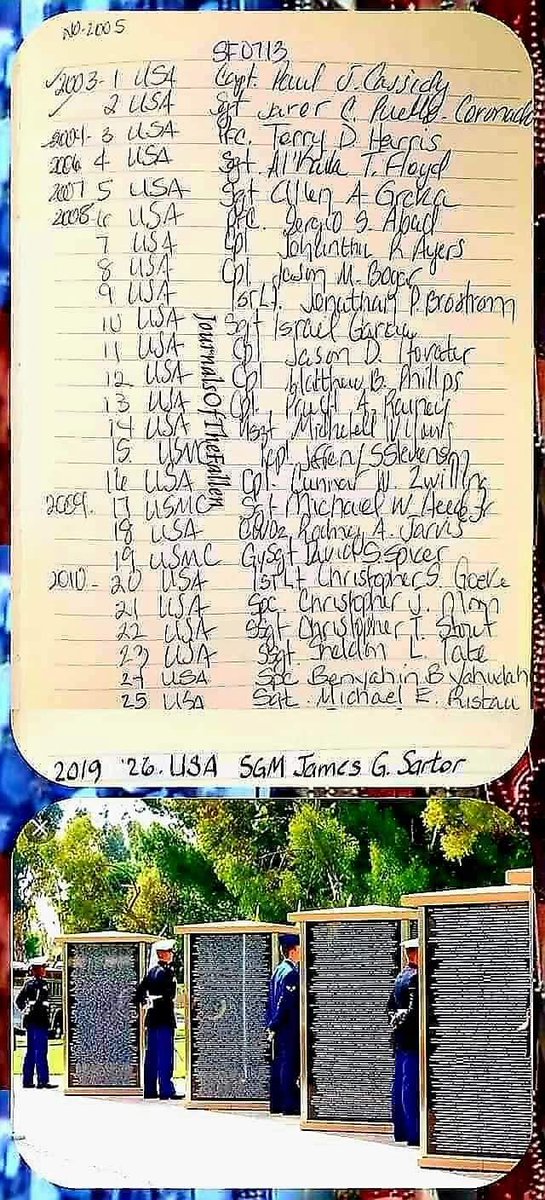 NO-2005
SF0713
✓2003-1 USA Capt. Paul J. Cassidy
✓ 2 USA Sgt Jaror C. Puello-Coronado
2004-3 USA Pfc. Terry D Harris
2006 4 USA Sgt. Al'Kaila T. Floyd
2007 5 USA Sgt Allen A Greka
2008-6 USA Pfc. Sergio S. Abad
7 USA Cpl Johnathan R Ayers
8 USA Cpl Jason M. Bogar
9 USA 1st Lt. Jonathan P. Brostrom
10 USA Sgt Israel Garcia
11 USA Cpl Jason D. Hovater
12 USA Cpl. Matthew B. Phillips
13 USA Cpl. Pruitt A. Rainey
14 USA Mitchell
15 USMC Jeffery S Stevenson
16 USA Cpl. Gunnar W. Zwilling
2009. 17 USMC Sgt Michael W. Heede Jr
18 USA Rodney A. Jarvis
19 USMC GySgt David S. Spicer
2010-20 USA 1st Lt Christopher S. Goeke
21 USA Spc. Christopher J. Moon
22 USA SSgt Christopher T. Stout
23 USA SSgt. Sheldon L. Tate
24 USA Spc Benyahin B Yahudah
25 USA Sgt. Michael E. Ristau
JournalsOfTheFallen
2019 '26. USA SGM James G. Sartor